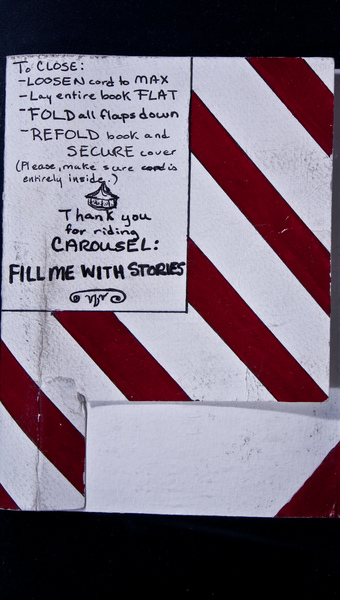 To CLOSE:
-LOOSEN cord to MAX
-Lay entire book FLAT
-FOLD all flaps down
-REFOLD book and
SECURE cover
(Please, make sure cord is
entirely inside.)
Thank you
for riding
CAROUSEL:
FILL ME WITH STORIES